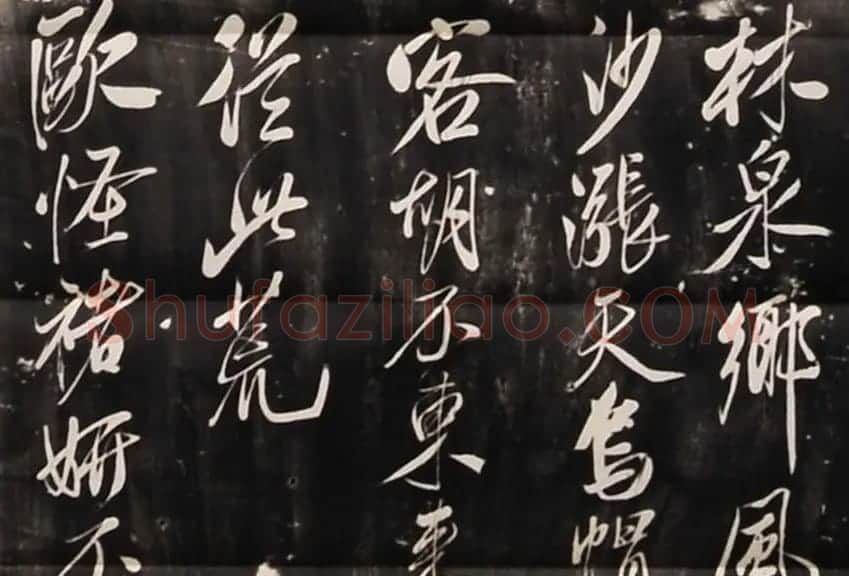 林泉鄉風
沙漲天烏帽
客胡不東来
從此荒
歐怪褚妍不
shufaziliao.COM